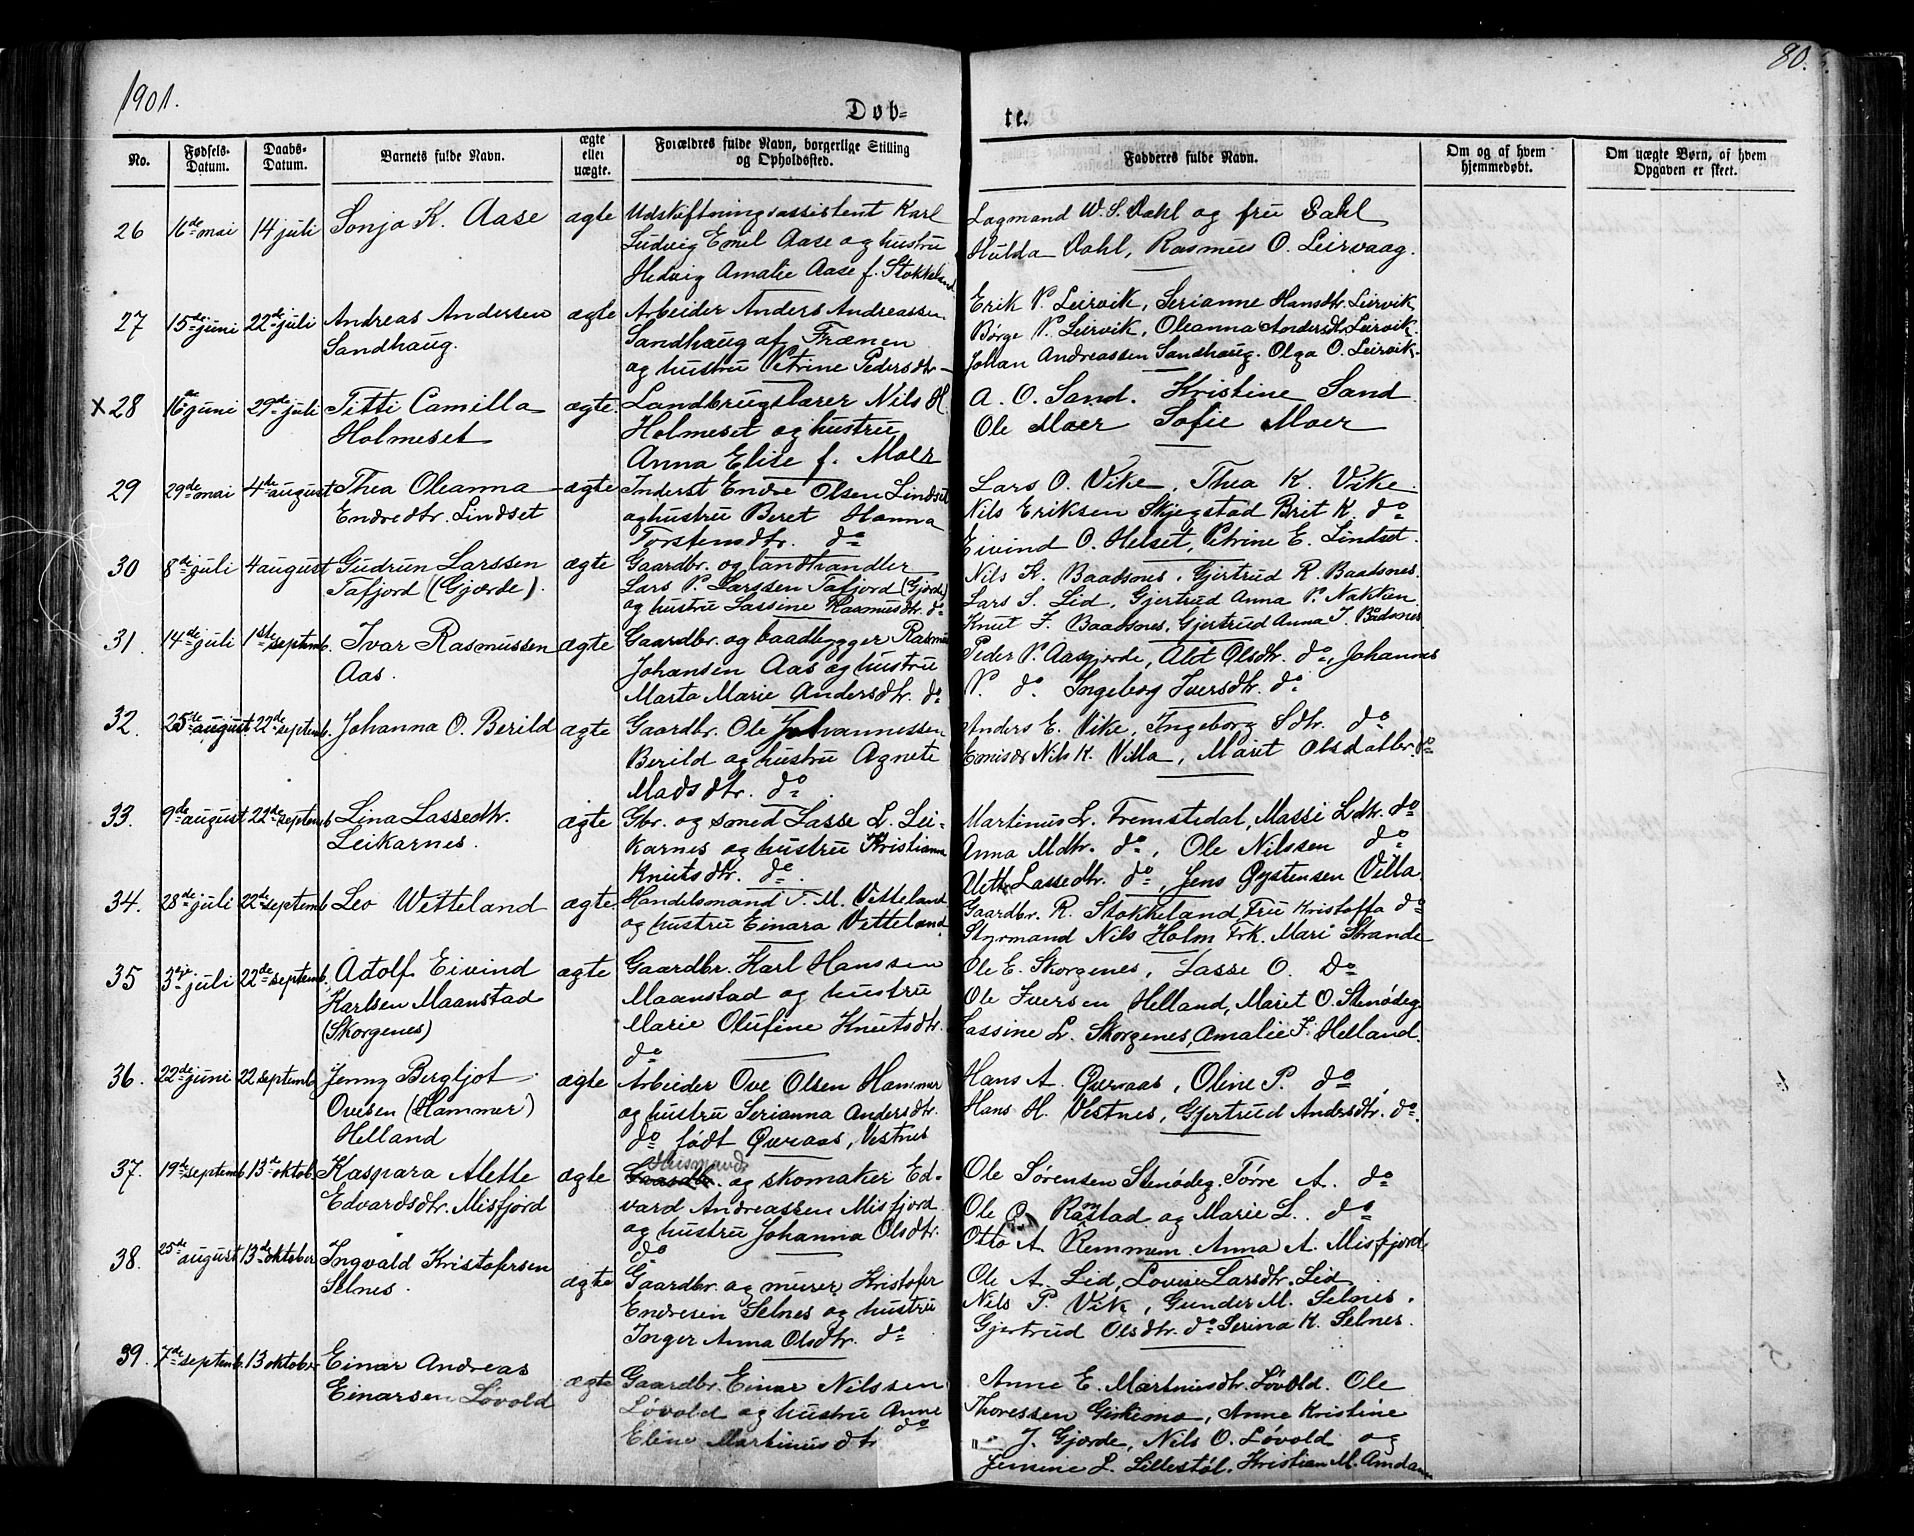 1901.
80.
Døb-
te.
No.
Fødsels-Datum.
Daabs-Datum.
Barnets fulde Navn.
ægte eller uægte.
Forældres fulde Navn, borgerlige Stilling og Opholdssted.
Fadderes fulde Navn.
Om og af hvem hjemmedøbt.
Om uægte Børn, af hvem Opgaven er skeet.
26 16de mai 14 juli Sonja K. Aase ægte Udskiftningsassistent Karl
Ludvig Emil Aase og hustru
Hedvig Amalie Aase f. Stokkeland
Lagmand W. S. Dahl og fru Dahl
Hulda Dahl, Rasmus O. Leirvaag.
27 15de juni 22de juli Andreas Andersen ægte Arbeider Anders Andreassen
Sandhaug. Sandhaug af Frænen
og hustru Petrine Pedersdtr.
Erik P. Leirvik, Serianne Hansdtr. Leirvik
Børge P. Leirvik, Oleanna Andersdtr. Leirvik.
Johan Andreassen Sandhaug. Olga O. Leirvik.
x 28 16de juni 29de juli Titti Camilla ægte. Landbrugslærer Nils H
Holmeset Holmeset og hustru
Anna Elise f. Moer
A. O. Sand. Kristine Sand
Ole Moer Sofie Moer
29 29de mai 4de august Thea Oleanna ægte Inderst Endre Olsen Lindset
Endredtr. Lindset og hustru Beret Hanna
Torstensdtr. do
Lars O. Vike, Thea K. Vike.
Nils Eriksen Skjegstad Brit K. do
Eivind O. Helset, Petrine E. Lindset.
30 8de juli 4 august Gudrun Larssen ægte Gaardbr. og landhandler
Tafjord (Gjærde). Lars P. Larssen Tafjord (Gjærde)
og hustru Lassine Rasmusdtr. do
Nils K. Baadsnes, Gjertrud R. Baadsnes.
Lars S. Lid, Gjertrud Anna P. Nakken
Knut J. Baadsnes, Gjertrud Anna J. Baadsnes
31. 14de juli 1ste septemb. Ivar Rasmussen ægte Gaardbr. og baadbygger Rasmus
Aas. Johansen Aas og hustru
Marta Marie Andersdtr. do
Peder P. Aasgjerde, Alet Olsdtr. do, Johannes
P. do. Ingeborg Iversdtr. do
32. 25de august 22de septemb. Johanna O. Berild ægte Gaardbr. Ole Johannessen
Berild og hustru Agnete
Madsdtr. do
Anders E. Vike, Ingeborg Sdtr. do
Emisær Nils K. Villa, Maret Olsdatter do
33. 9de august 22de septemb Lina Lassedtr. ægte Gbr. og smed Lasse L. Lei-
Leikarnes. karnes og hustru Kristianna
Knutsdtr. do.
Martinus L. Fremstedal, Massi Ldtr. do
Anna Mdtr. do, Ole Nilssen do
Aleth Lassedtr. do, Jens Øystensen Villa
34. 28de juli 22de septemb Leo Vitteland ægte. Handelsmand T. M. Vetteland
og hustru Einara Vetteland
Gaardbr. R. Stokkeland, Fru Kristoffa do
Styrmand Nils Holm Frk. Mari Strande
35 3dje juli 22de septemb. Adolf Eivind ægte Gaardbr. Karl Hanssen
Karlsen Maanstad Maanstad og hustru
(Skorgenes) Marie Olufine Knutsdtr.
do
Ole E. Skorgenes, Lasse O. do
Ole Iversen Helland, Maret O. Stenødeg
Lassine L. Skorgenes, Amalie I. Helland.
36. 22de juni 22 septemb Jenny Bergljot ægte Arbeider Ove Olsen Hammer
Ovesen (Hammer) og hustru Serianna Andersdtr.
Helland do født Øvraas, Vestnes
Hans A. Øvraas, Oline P. do
Hans H. Vestnes, Gjertrud Andrsdtr. do
37. 19de septemb 13de oktob. Kaspara Alette ægte Gaardbr. Husmand og skomaker Ed-
Edvardsdtr. Misfjord vard Andreassen Misfjord
og hustru Johanna Olsdtr.
do
Ole Sørensen Stenødeg. Tørre A. do
Ole Ramstad og Marie L. do
Otto A. Remmem. Anna A. Misfjord
38. 25de august 13de oktober Ingvald Kristofersen ægte Gaardbr. og murer Kristofer
Selnes. Endresen Selnes og hustru
Inger Anna Olsdtr. do
Ole A. Lid, Lovise Larsdtr. Lid
Nils P. Vik, Gunder M. Selnes.
Gjertrud Olsdtr. do Serina K. Selnes.
39. 7de septemb. 13 oktober Einar Andreas ægte Gaardbr. Einar Nilssen
Einarsen Løvold Løvold og hustru Anne
Eline Martinusdtr do
Anne E. Martinusdtr. Løvold. Ole
Thoressen Giskemo, Anne Kristine
J. Gjerde, Nils O. Løvold og
Jensine L. Lillestøl. Kristian M. Amdam